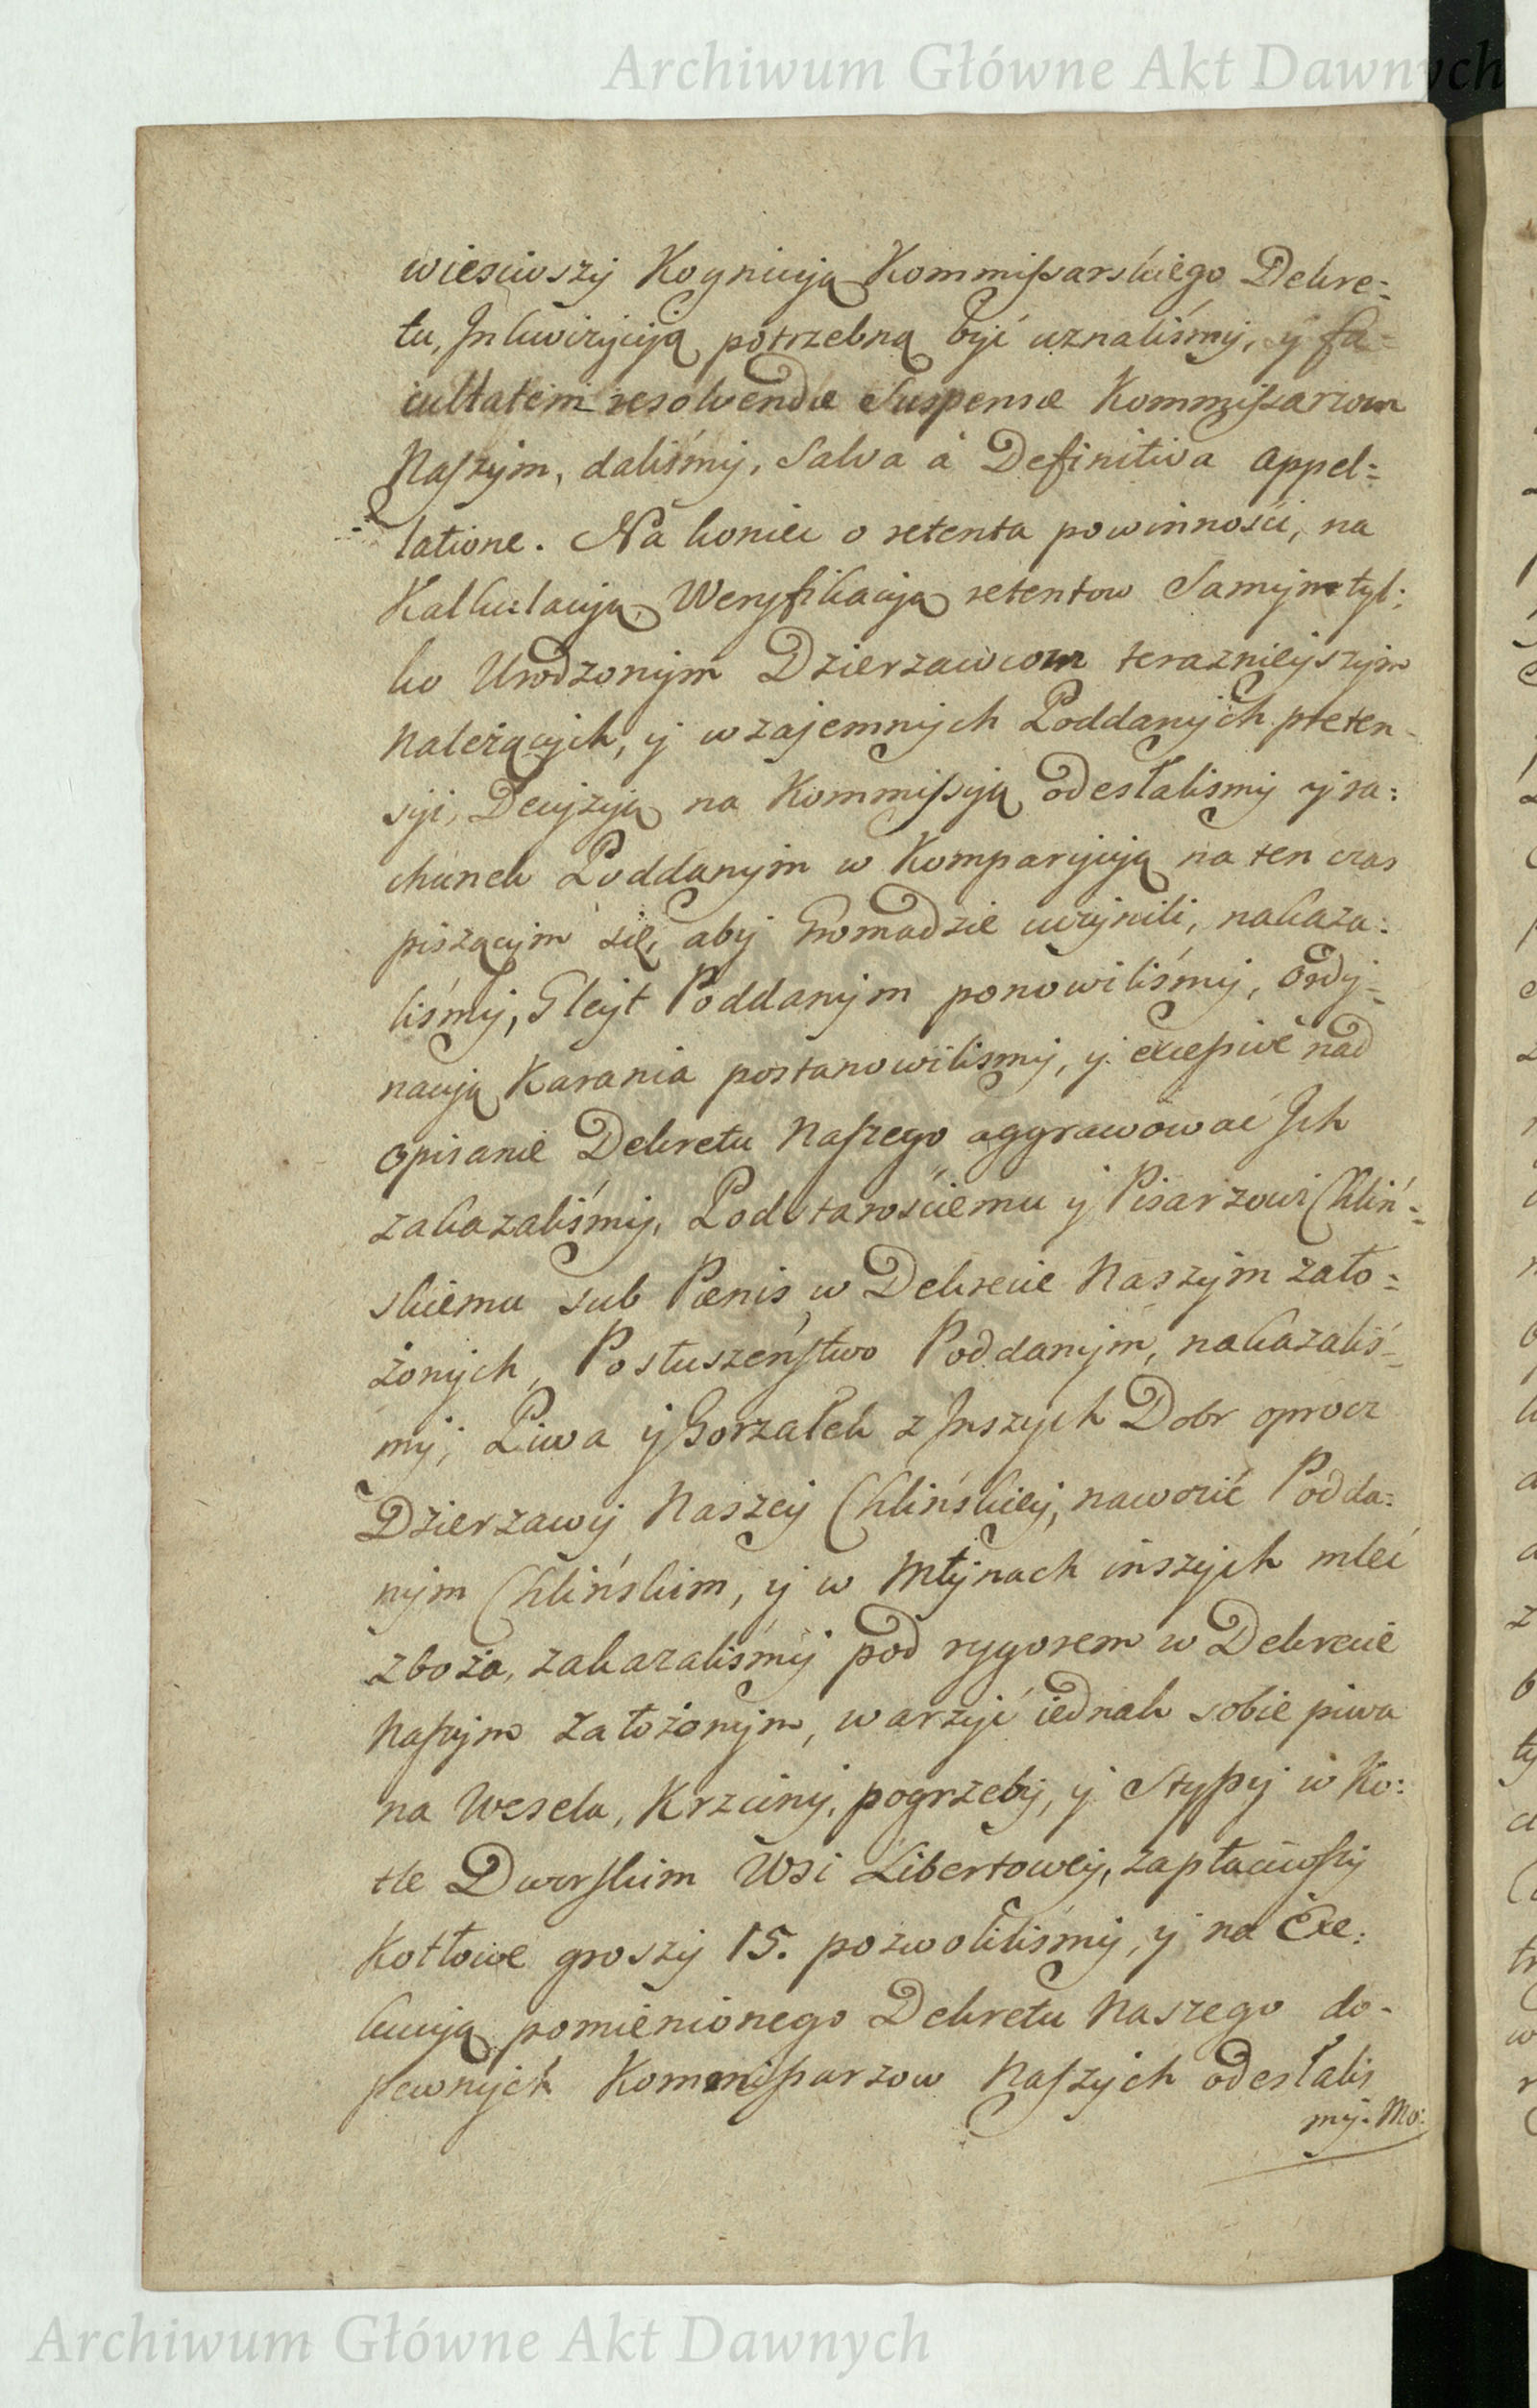 Archiwum Główne Akt Dawnych
wieściwszy Kognicyą Kommissarskiego Dekre=
tu, Inkwizycyą potrzebną być uznaliśmy, y fa=
cultatem resolvendæ Suspensæ Kommissarzom
Naszym, daliśmy, Salva à Definitiva appel=
latione. Na koniec o retenta powinności, na
Kalkulacyą, Weryfikacyą retentow Samym tyl:
ko Urodzonym Dzierzawcom teraznieyszym
należących, y wzajemnych Poddanych preten-
syi, Decyzyą na Kommissyą odesłalismy y ra:
chunek Poddanym w Komparycyą na ten czas
piszącym się, aby Gromadzie uczynili, nakaza:
liśmy, Gleyt Poddanym ponowiliśmy, Ordy=
nacyą Karania postanowilismy, y excessive nad
opisanie Dekretu Naszego aggrawować Ich
zakazaliśmy, Podstarościemu y Pisarzowi Chliń=
skiemu sub Pænis w Dekrecie Naszym zało=
żonych, Posłuszeństwo Poddanym, nakazaliś=
my; Piwa y Gorzałek z Inszych Dobr oprocz
Dzierzawy Naszey Chlińskiey, nawozić Podda:
nym Chlińskim, y w Młynach inszych mleć
zboża, zakazaliśmy pod rygorem w Dekrecie
Naszym założonym, warzyć iednak sobie piwa
na Wesela, Krzciny, pogrzeby, y Stypy w Ko:
tle Dworskim Wsi Libertowey, zapłaciwszy
Kotłowe groszy 15. pozwoliliśmy, y na Exe:
kucyą pomienionego Dekretu Naszego do-
pewnych Kommissarzow Naszych odesłalis
my. Mo:
Archiwum Główne Akt Dawnych